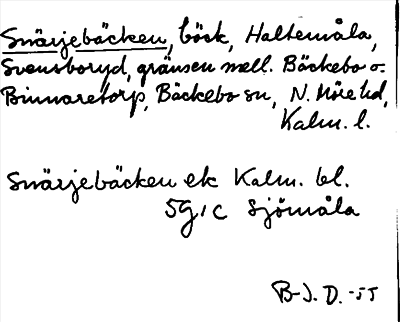 Snärjebäcken, bäck, Haltemåla,
Svensboryd, gränsen mell. Bäckebo o.
Binnaretorp, Bäckebo sn, N. Möre hd,
Kalm. l.
Snärjebäcken ek Kalm. bl.
5G1c Sjömåla
B-J. D. -55